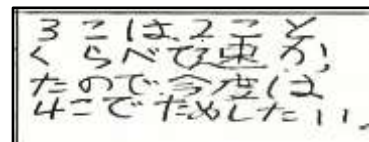 3こは、2こと
くらべて重か
たので今度は
4こでためしたい。